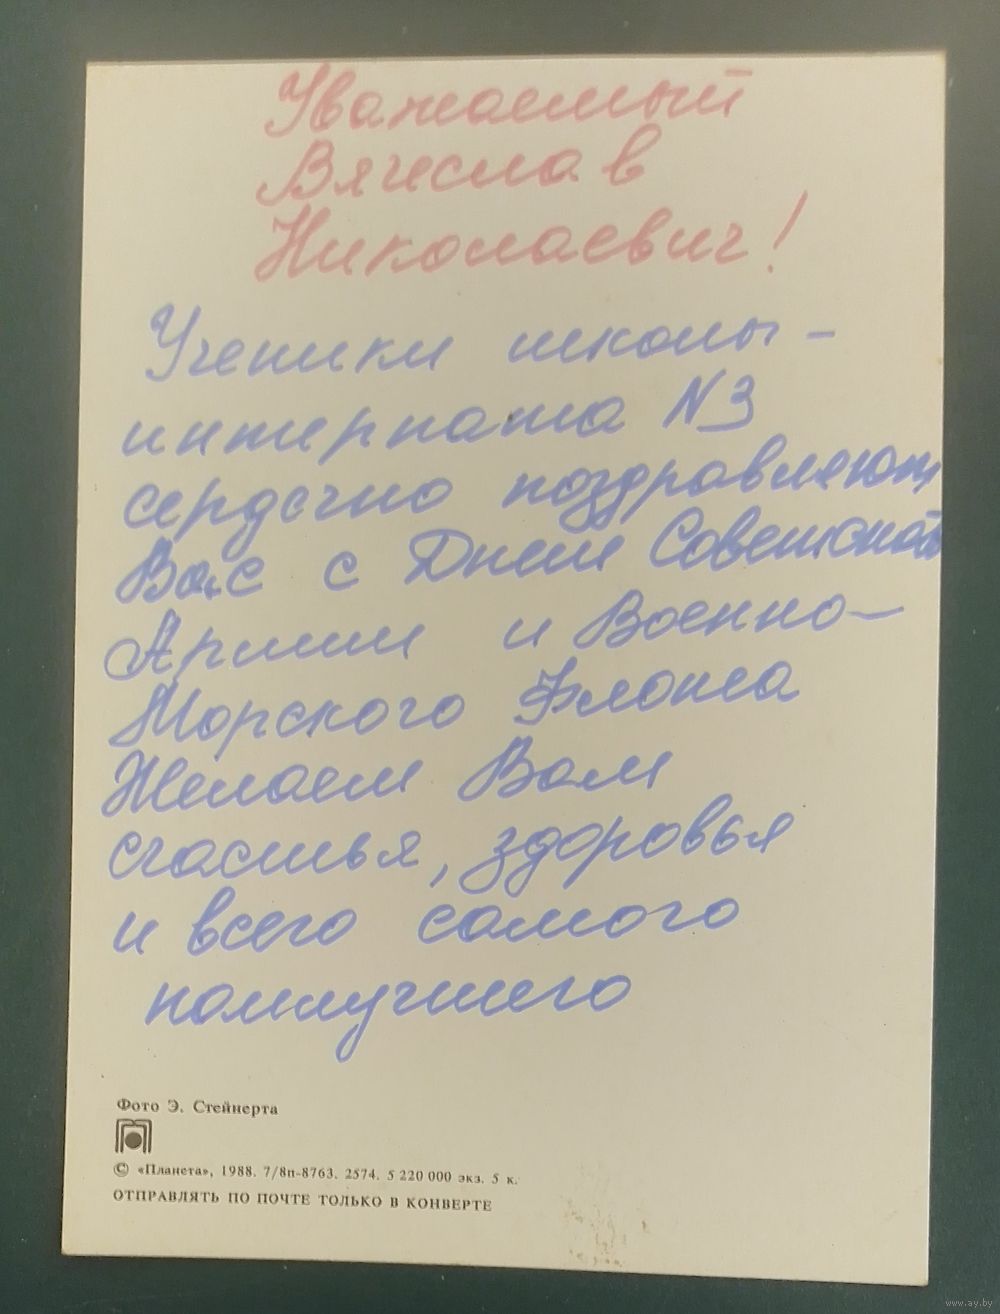 Уважаемый
Вячеслав
Николаевич!
Ученики школы-
интерната N3
сердечно поздравляют
Вас с Днем Советской
Армии и Военно-
Морского Флота
Желаем Вам
счастья, здоровья
и всего самого
наилучшего
Фото Э. Стейнерта
© «Планета», 1988. 7/8п-8763. 2574. 5 220 000 экз. 5 к.
ОТПРАВЛЯТЬ ПО ПОЧТЕ ТОЛЬКО В КОНВЕРТЕ
www.ay.by